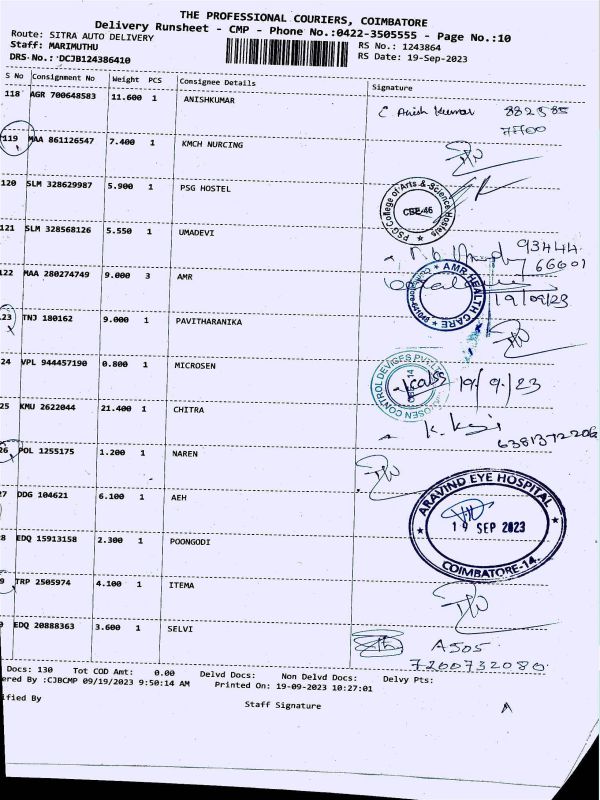 THE PROFESSIONAL COURIERS, COIMBATORE
Delivery Runsheet - CMP - Phone No.:0422-3505555 - Page No.:10
Route: SITRA AUTO DELIVERY
RS No.: 1243864
Staff: MARIMUTHU
RS Date: 19-Sep-2023
DRS No.: DCJB124386410
S No Consignment No Weight PCS Consignee Details Signature
118 AGR 700648583 11.600 1 ANISHKUMAR Anish kumar
119 MAA 861126547 7.400 1 KMCH NURCING
120 SLM 328629987 5.900 1 PSG HOSTEL
PSG College of Arts & Science Hostels
CBE-46
121 SLM 328568126 5.550 1 UMADEVI 93444
66601
122 MAA 280274749 9.000 3 AMR
AMR HEALTH CARE
19/09/23
23 TNJ 180162 9.000 1 PAVITHARANIKA
24 VPL 944457190 0.800 1 MICROSEN
CONTROL DEVICES PVT LTD
19/9/23
25 KMU 2622044 21.400 1 CHITRA
26 POL 1255175 1.200 1 NAREN
27 DDG 104621 6.100 1 AEH
ARAVIND EYE HOSPITAL
19 SEP 2023
COIMBATORE-14.
8 EDQ 15913158 2.300 1 POONGODI
9 TRP 2505974 4.100 1 ITEMA
EDQ 20888363 3.600 1 SELVI A505
7200732080
Docs: 130 Tot COD Amt: 0.00 Delvd Docs: Non Delvd Docs: Delvy Pts:
ered By :CJBCMP 09/19/2023 9:50:14 AM Printed On: 19-09-2023 10:27:01
ified By Staff Signature
A